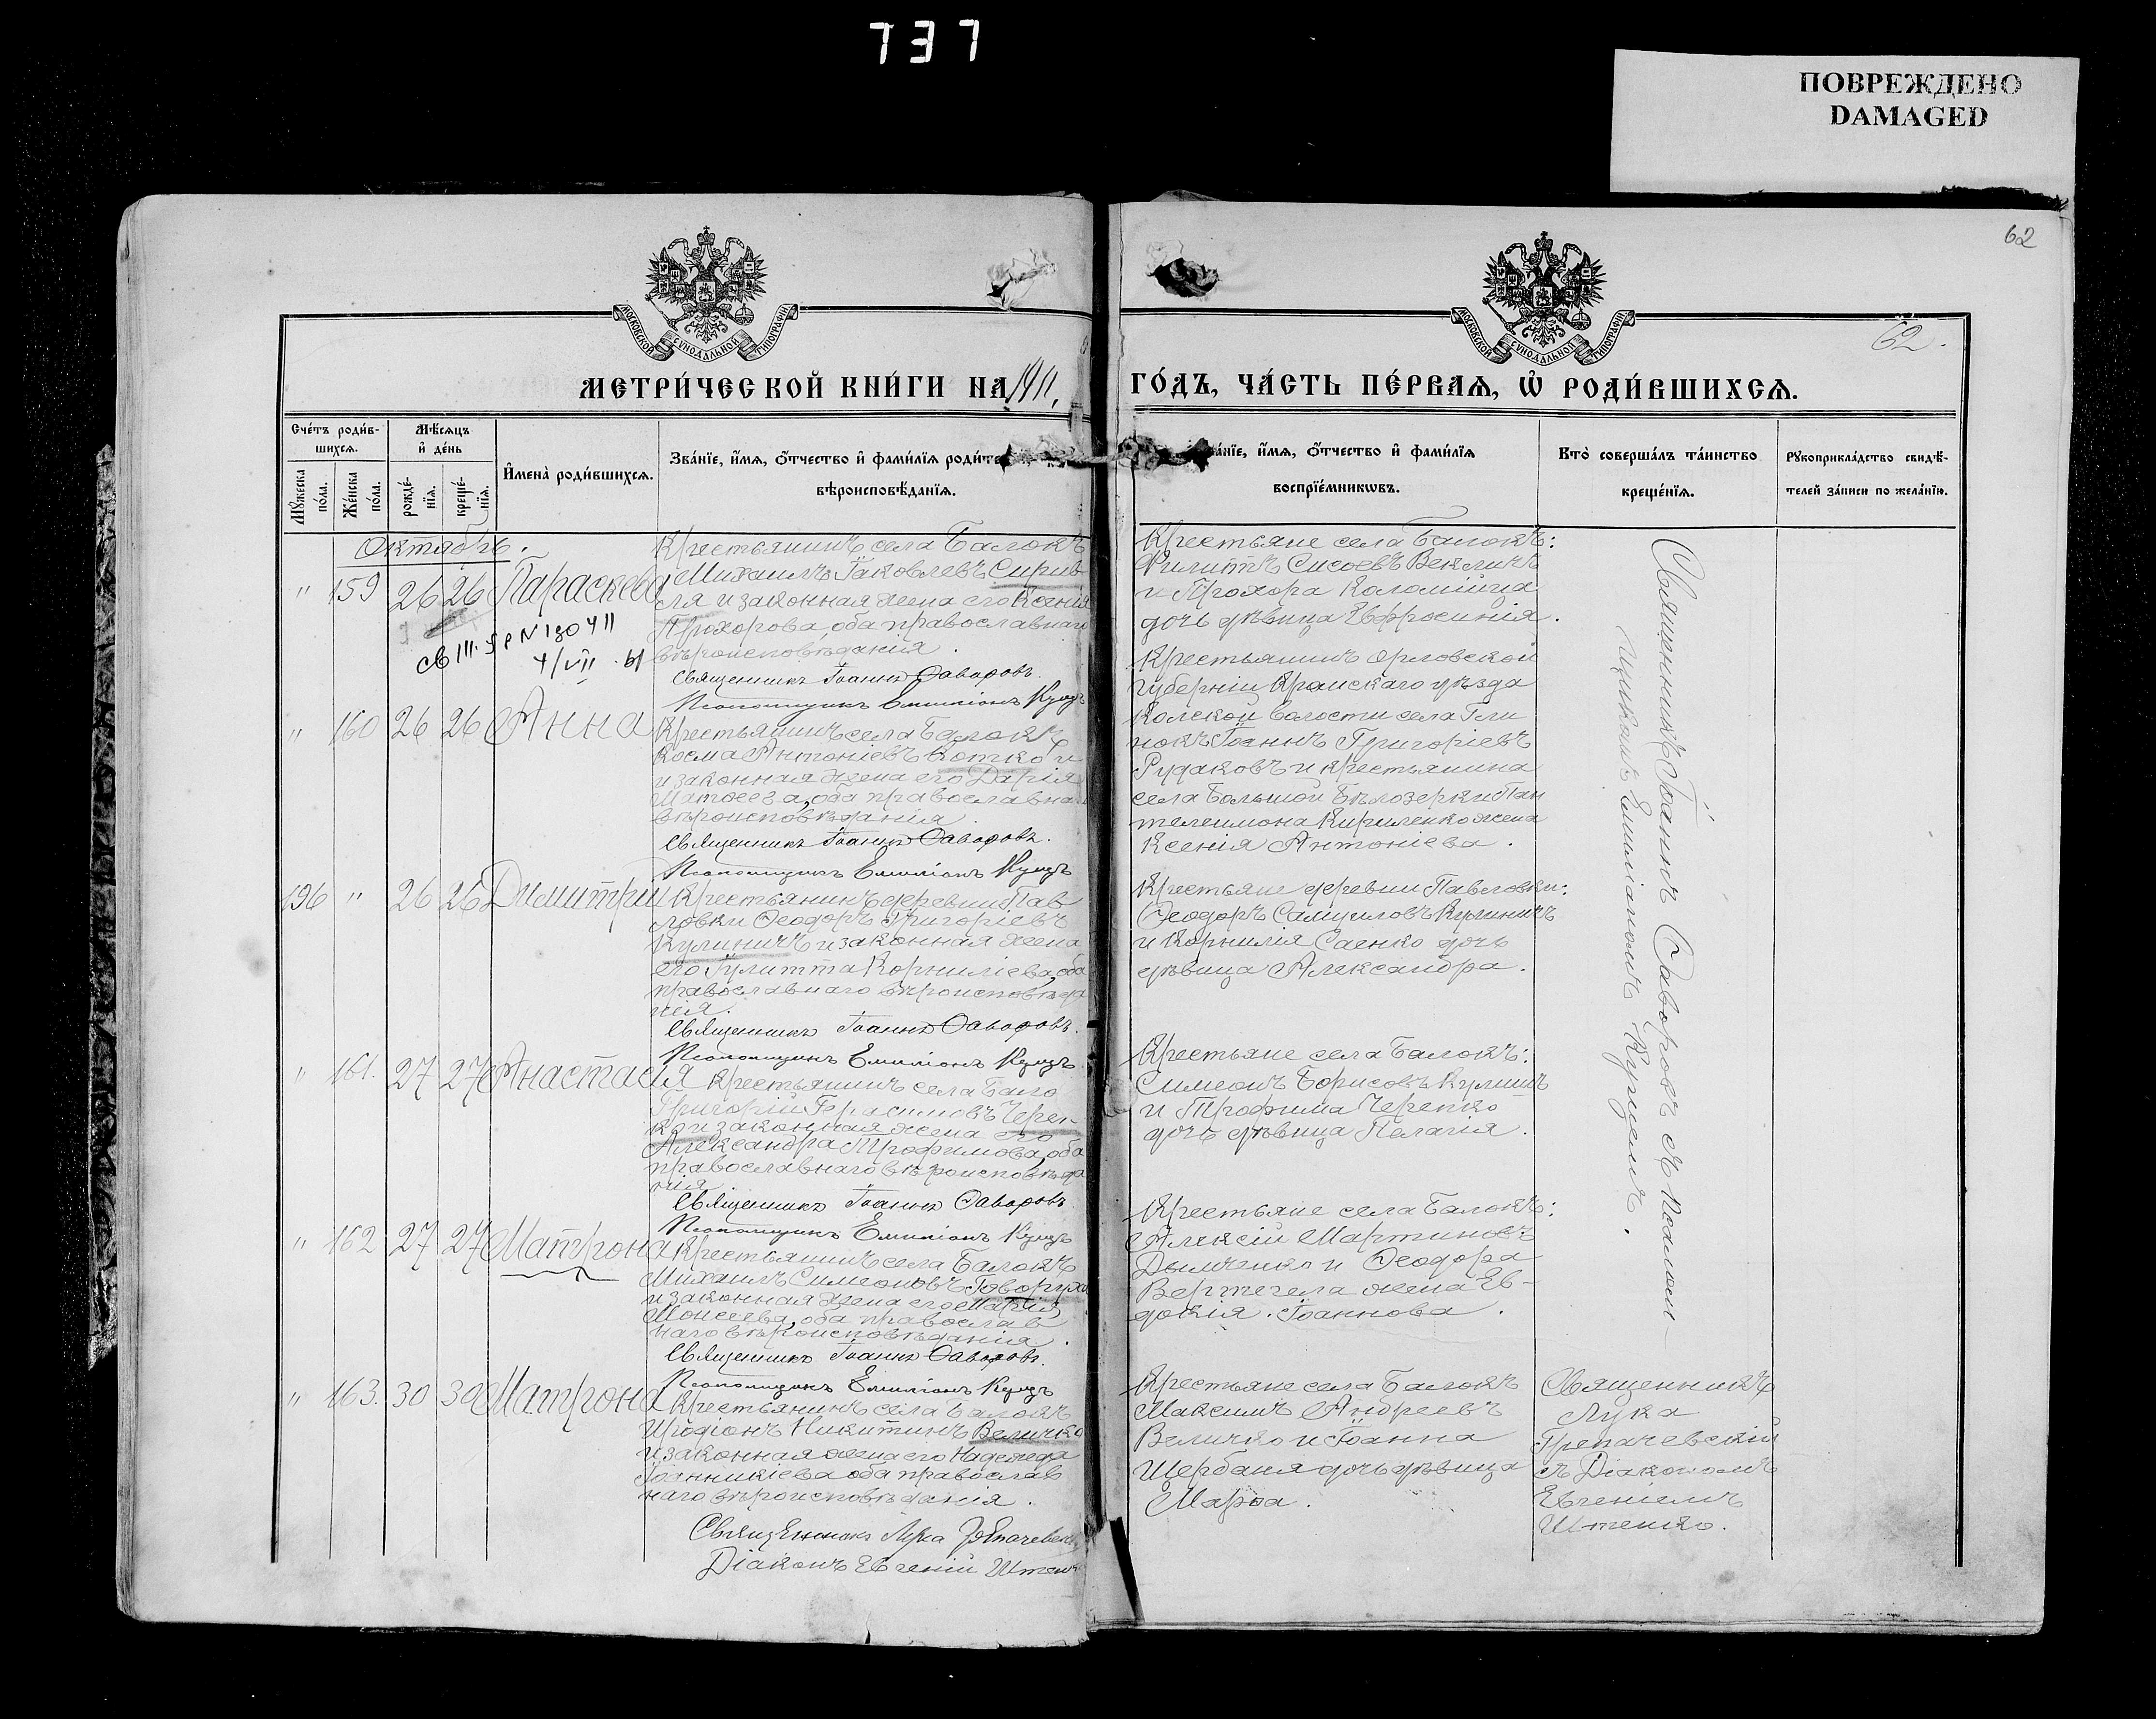 737
ПОВРЕЖДЕНО
DAMAGED
62
62.
МОСКОВСКОЙ СѴНОДАЛЬНОЙ ТИПОГРАФІИ
МОСКОВСКОЙ СѴНОДАЛЬНОЙ ТИПОГРАФІИ
МЕТРИ́ЧЕСКОЙ КНИ́ГИ НА 1911,
ГО́ДЪ, ЧА́СТЬ ПЕ́РВАѦ, Ѡ҆ РОДИ́ВШИХСѦ.
Сче́тъ роди́в-
шихсѧ.
Мѣ́сѧцъ
и҆ де́нь
Мꙋ́жеска по́ла.
Же́нска по́ла.
рожде́-нїѧ.
креще́-нїѧ.
И҆мена̀ роди́вшихсѧ.
Зва́нїе, и҆́мѧ, ѻ҆́тчество и҆ фами́лїѧ роди́те
вѣроисповѣ́данїѧ.
а́нїе, и҆́мѧ, ѻ҆́тчество и҆ фами́лїѧ
воспрїе́мникѡвъ.
Кто̀ соверша́лъ та́инство
креще́нїѧ.
Рꙋкоприкла́дство свидѣ́-
телей за́писи по жела́нїю.
Октябрь.
" 159 26 26 Параскева
Крестьянинъ села Балокъ
Михаилъ Іаковлевъ Сирив
ля и законная жена его Ксенія
Прохорова, оба православнаго
вѣроисповѣданія.
Священникъ Іоаннъ Ѳаворовъ.
Псаломщикъ Емиліанъ Куцъ
Крестьяне села Балокъ:
Филиппъ Сисоевъ Векличъ
и Прохора Коломійца
дочь дѣвица Евфросинія.
" 160 26 26 Анна
Крестьянинъ села Балокъ
Косма Антоніевъ Котко и
и законная жена его Дарія
Матѳеева, оба православна
вѣроисповѣданія.
Священникъ Іоаннъ Ѳаворовъ.
Псаломщикъ Емиліанъ Куцъ
Крестьянинъ Орловской
губерніи Кромскаго уѣзда
волости села Гли
нокъ Іоаннъ Григоріевъ
Рудаковъ и крестьянина
села Большой Бѣлозерки Пан
телеимона Кириленко жена
Ксенія Антоніева.
196 " 26 26 Димитрій
Крестьянинъ деревни Пав
ловки Ѳеодоръ Григоріевъ
Кулиничъ и законная жена
его Іулитта Корниліева, оба
православнаго вѣроисповѣда
нія.
Священникъ Іоаннъ Ѳаворовъ.
Псаломщикъ Емиліанъ Куцъ
Крестьяне деревни Павловки:
Ѳеодоръ Самуиловъ Кулиничъ
и Корнилія Саенко дочь
дѣвица Александра.
" 161. 27 27 Анастасія
Крестьянинъ села Бало
Григорій Герасимовъ Череп
ко и законная жена его
Александра Трофимова, оба
православнаго вѣроисповѣда
нія
Священникъ Іоаннъ Ѳаворовъ
Псаломщикъ Емиліанъ Куцъ
Крестьяне села Балокъ:
Симеонъ Борисовъ Кулишъ
и Трофима Черепко
дочь дѣвица Пелагія.
" 162 27 27 Матрона
Крестьянинъ села Балокъ
Михаилъ Симеоновъ Говоруха
и законная жена его Марія
Моисеева, оба православ
наго вѣроисповѣданія.
Священникъ Іоаннъ Ѳаворовъ.
Псаломщикъ Емиліанъ Куцъ
Крестьяне села Балокъ:
Алексій Мартиновъ
Дымченко и Ѳеодора
Вертегела жена Ев-
докія Іоаннова.
Священникъ Іоаннъ Ѳаворовъ съ Псалом-
щикомъ Емиліаномъ Куцемъ.
" 163. 30 30 Матрона
Крестьянинъ села Балокъ
Иродіонъ Никитинъ Величко
и законная жена его Надежда
Іоанникіева оба православ
наго вѣроисповѣданія.
Священникъ Лука
Діаконъ Евгеній Штенк
Крестьяне села Балокъ
Максимъ Андреевъ
Величко и Іоанна
Щербаня дочь дѣвица
Марѳа.
Священникъ
Лука
Грепачевскій
съ Діакономъ
Евгеніемъ
Штенко.